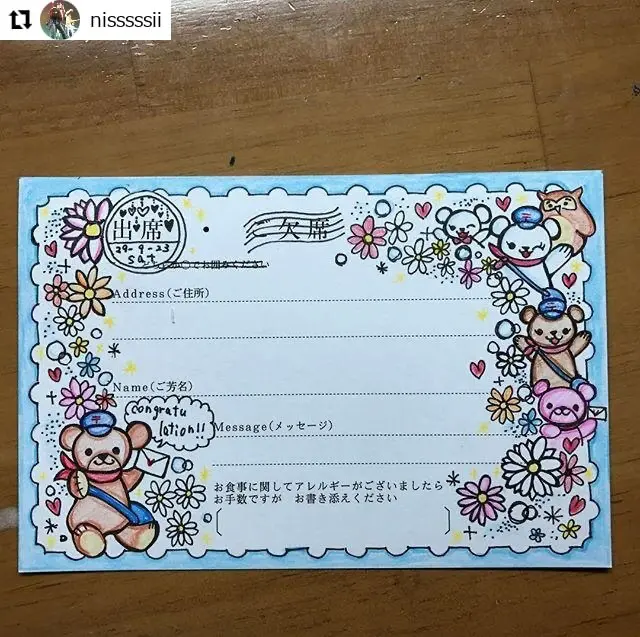 nisssssii
出席
欠席
29-9-23
Sat
でお囲みください
Address(ご住所)
Name(ご芳名)
Congratu
lation!!
Message(メッセージ)
お食事に関してアレルギーがございましたら
お手数ですが お書き添えください
〒